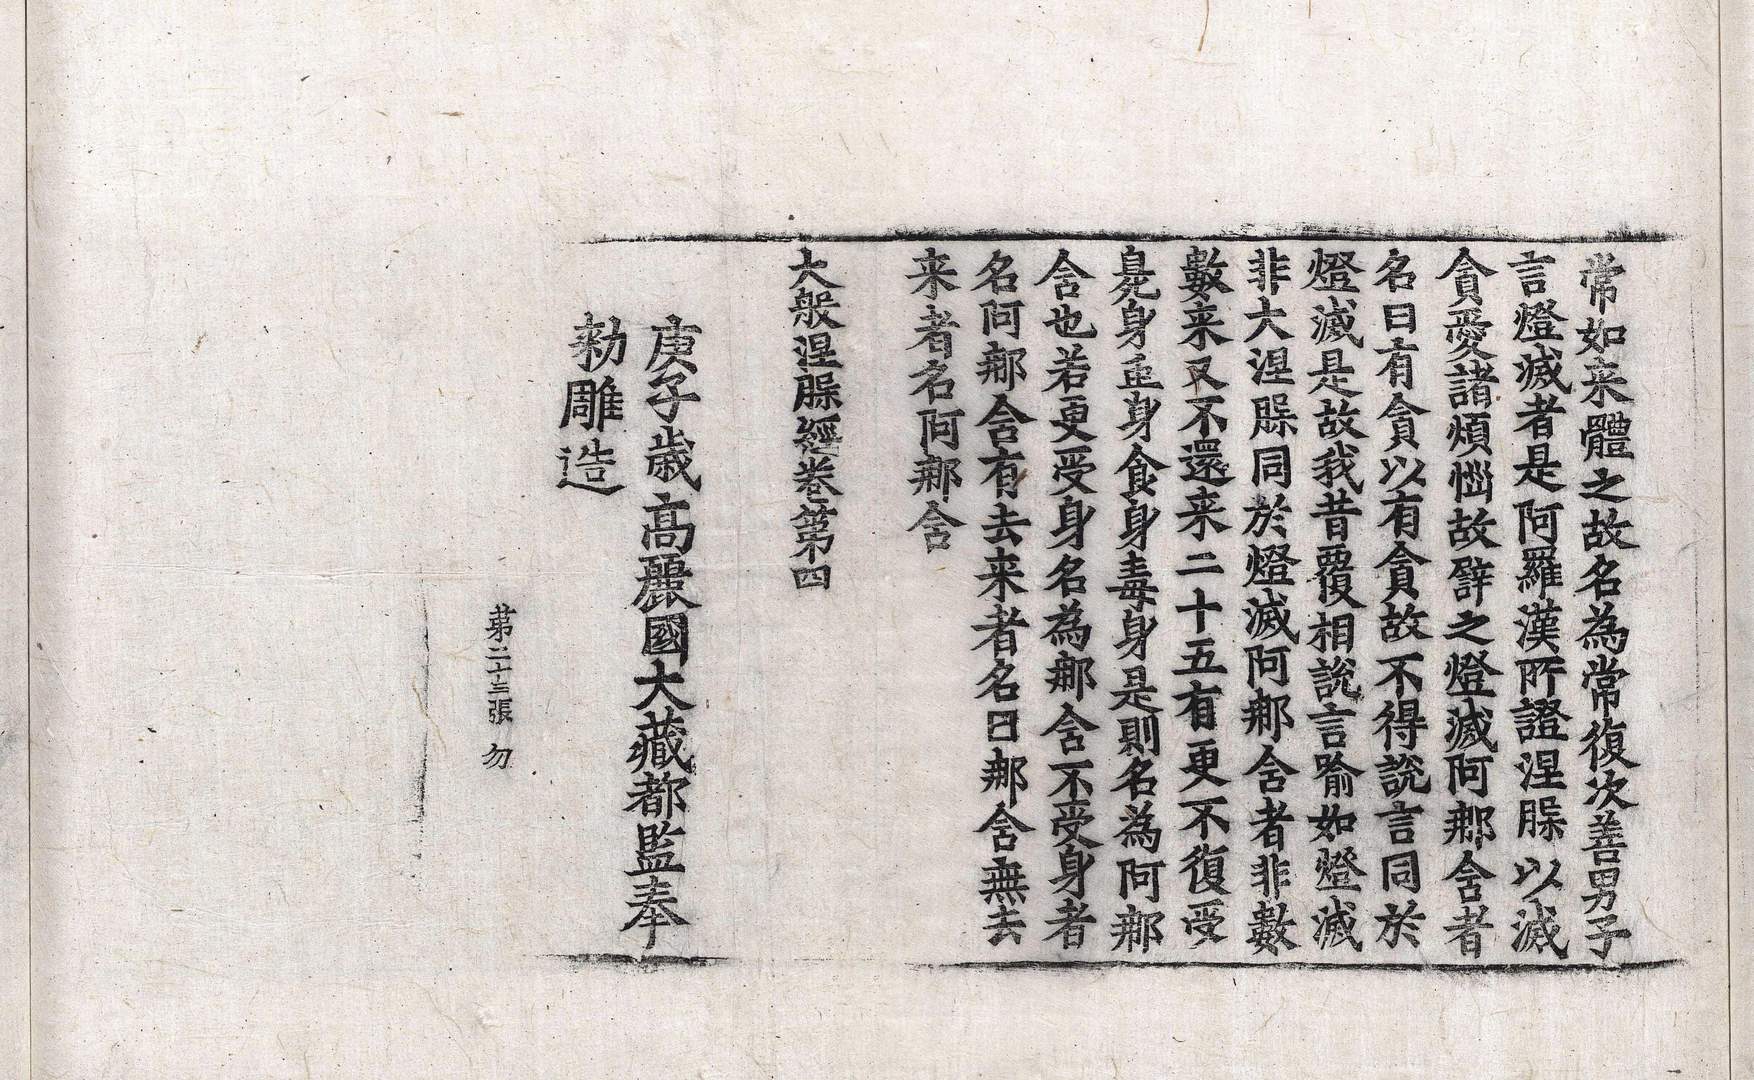 常如来體之故名為常復次善男子
言燈滅者是阿羅漢所證涅槃以滅
貪愛諸煩惱故譬之燈滅阿那含者
名曰有貪以有貪故不得說言同於
燈滅是故我昔覆相說言喻如燈滅
非大涅槃同於燈滅阿那含者非數
數来又不還来二十五有更不復受
臭身虫身食身毒身是則名為阿那
含也若更受身名為那含不受身者
名阿那含有去来者名曰那含無去
来者名阿那含
大般涅槃經卷第四
庚子歲高麗國大藏都監奉
勑雕造
第二十三張 勿